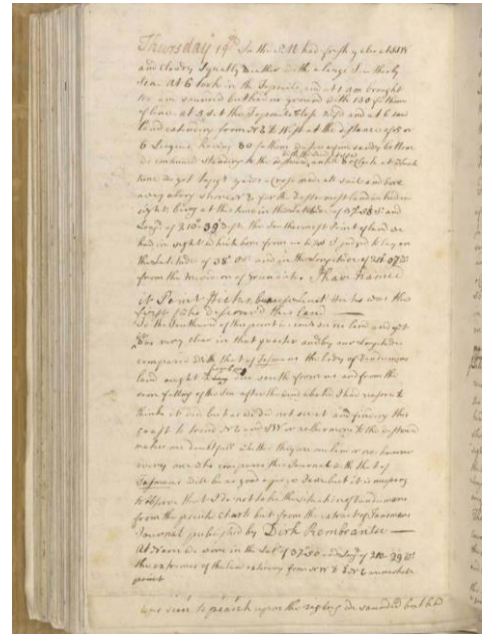 Thursday 19th In the PM had fresh gales at SSW
and Cloudy Squally weather with a large Southerly
Sea. At 6 took in the Topsails, and at 1 am brought
too and sounded but had no ground with 130 fathoms
of line. at 5 set the Topsails close reef'd and at 6 saw
land extending from NE to West at the distance of 5 or
6 Leagues having 80 fathoms
we continued standing to the westward with the wind at SSW untill 8 oClock at which
time we got topgt yards a cross made all sail and bore
away along shore NE for the Eastermost land we had in
sight, being at this time in the Latitude of 37°.58' S. and
Longd of 210°.39' West. the Southermost Point of land we
had in sight which bore from us W¼S I judged to lay in
the Latitude of 38°.0' and in the Longitude of 211°.07' W
from the meridion of Greenwich. I have Named
it Point Hicks, because Lieut Hicks was the
first who discover'd this land
To the Southward of this point we could see no land and yet
it was very clear in that quarter and by our Longitude
compared with that of Tasmans the body of Vandiemens
land ought to have bore due south from us and from the
soon falling of the Sea after the wind abated I had reason to
think it did, but as we did not see it and finding this
coast to trend NE and SW or rather more to the westward
makes me doubtfull whether they are one land or no: however
every one who compares this Journal with that of
Tasmans will be as good a judge as I am, but it is necessary
to observe that I do not take the situation of Vandiemens
from the printed Charts but from the extract of Tasmans
Journal published by Dirk Rembrantse
At Noon we were in the Lat of 37°.50' and Long of 210°.29' W
the extremes of the land extending from NW to ENE
point